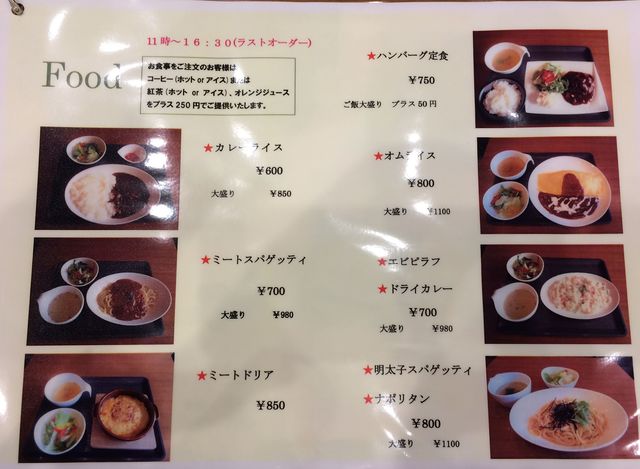 11時～16：30(ラストオーダー)
Food
お食事をご注文のお客様は
コーヒー(ホット or アイス)または
紅茶(ホット or アイス)、オレンジジュース
をプラス250円でご提供いたします。
★ハンバーグ定食
￥750
ご飯大盛り プラス50円
★カレーライス
￥600
大盛り ￥850
★オムライス
￥800
大盛り ￥1100
★ミートスパゲッティ
￥700
大盛り ￥980
★エビピラフ
★ドライカレー
￥700
大盛り ￥980
★ミートドリア
￥850
★明太子スパゲッティ
★ナポリタン
￥800
大盛り ￥1100